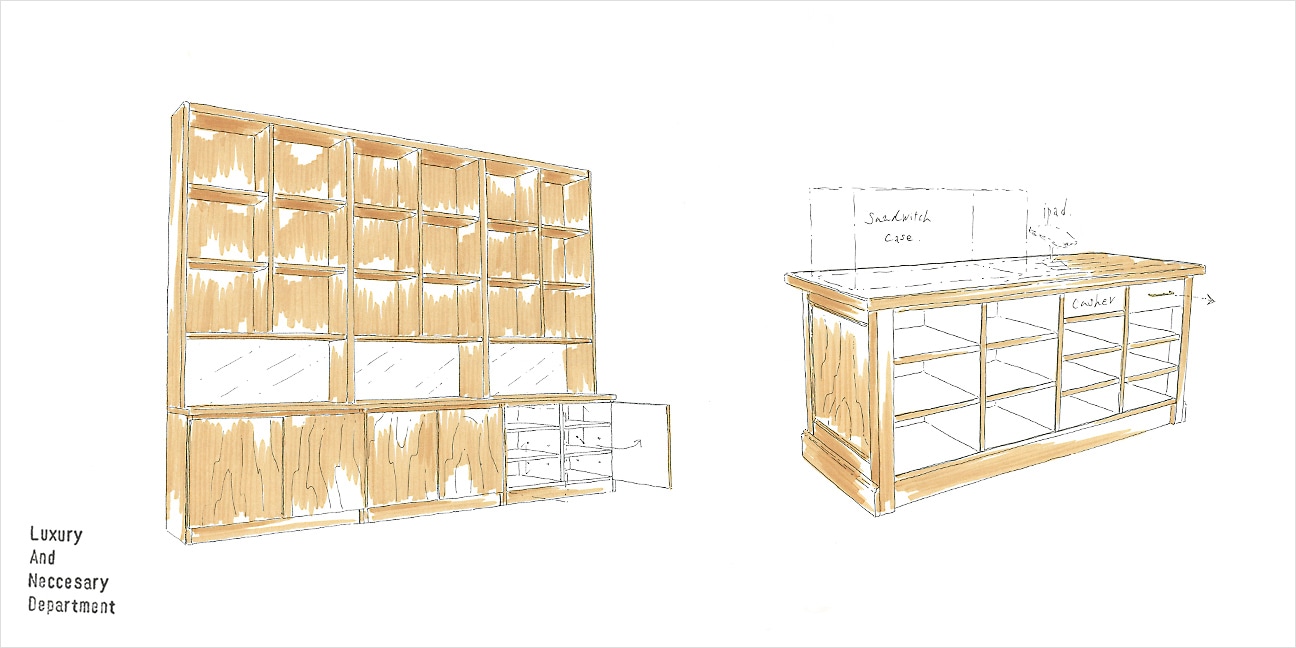 Sandwitch
Case.
ipad.
Casher
Luxury
And
Neccesary
Department